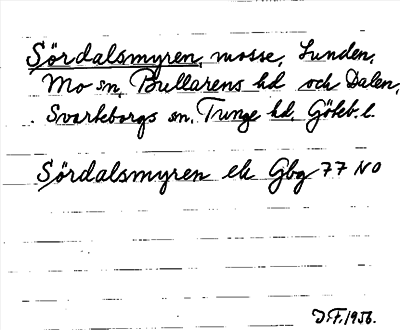 Sördalsmyren, mosse, Lunden,
Mo sn, Bullarens hd och Dalen,
Svarteborgs sn, Tunge hd, Göteb. l.
Sördalsmyren ek Gbg 77 NO
D.F. 1956.